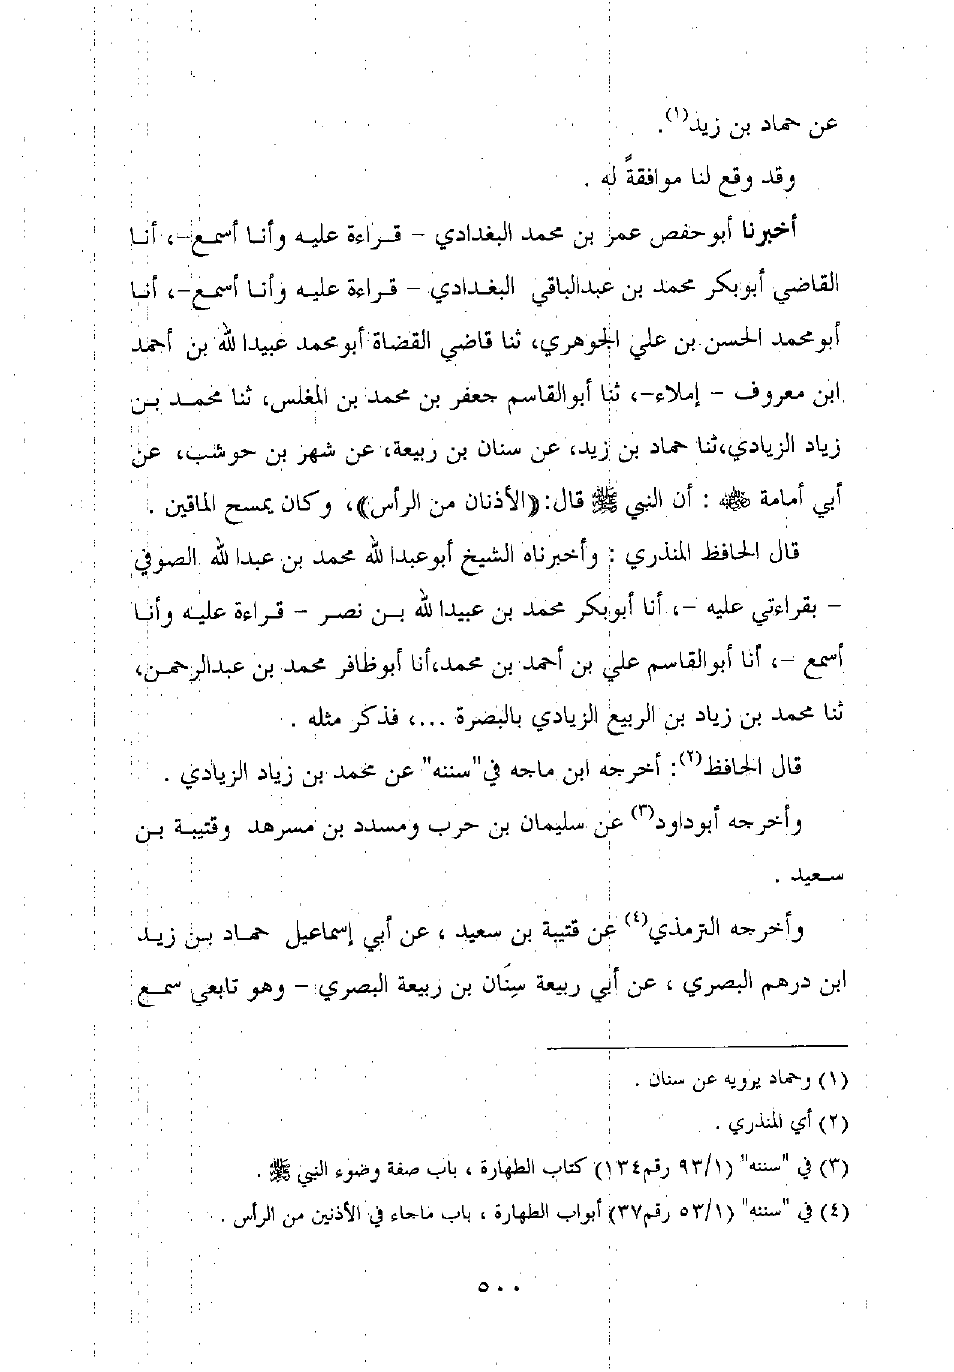 عن حماد بن زيد(١).
وقد وقع لنا موافقةً له .
أخبرنا أبوحفص عمر بن محمد البغدادي – قراءة عليه وأنا أسمع–، أنا
القاضي أبوبكر محمد بن عبدالباقي البغدادي – قراءة عليه وأنا أسمع–، أنا
أبومحمد الحسن بن علي الجوهري، ثنا قاضي القضاة أبومحمد عبيدا لله بن أحمد
ابن معروف – إملاء–، ثنا أبوالقاسم جعفر بن محمد بن المغلس، ثنا محمد بن
زياد الزيادي،ثنا حماد بن زيد، عن سنان بن ربيعة، عن شهر بن حوشب، عن
أبي أمامة ﷺ : أن النبي ﷺ قال:((الأذنان من الرأس))، وكان يمسح الماقين .
قال الحافظ المنذري : وأخبرناه الشيخ أبوعبدا لله محمد بن عبدا لله الصوفي
– بقراءتي عليه –، أنا أبوبكر محمد بن عبيدا لله بن نصر – قراءة عليه وأنا
أسمع –، أنا أبوالقاسم علي بن أحمد بن محمد،أنا أبوظافر محمد بن عبدالرحمن،
ثنا محمد بن زياد بن الربيع الزيادي بالبصرة ...، فذكر مثله .
قال الحافظ(٢): أخرجه ابن ماجه في"سننه" عن محمد بن زياد الزيادي .
وأخرجه أبوداود(٣) عن سليمان بن حرب ومسدد بن مسرهد وقتيبة بن
سعيد .
وأخرجه الترمذي(٤) عن قتيبة بن سعيد ، عن أبي إسماعيل حماد بن زيد
ابن درهم البصري ، عن أبي ربيعة سِنَان بن ربيعة البصري – وهو تابعي سمع
(١) وحماد يرويه عن سنان .
(٢) أي المنذري .
(٣) في "سننه" (٩٣/١ رقم١٣٤) كتاب الطهارة ، باب صفة وضوء النبي ﷺ .
(٤) في "سننه" (٥٣/١ رقم٣٧) أبواب الطهارة ، باب ماجاء في الأذنين من الرأس .
٥٠٠